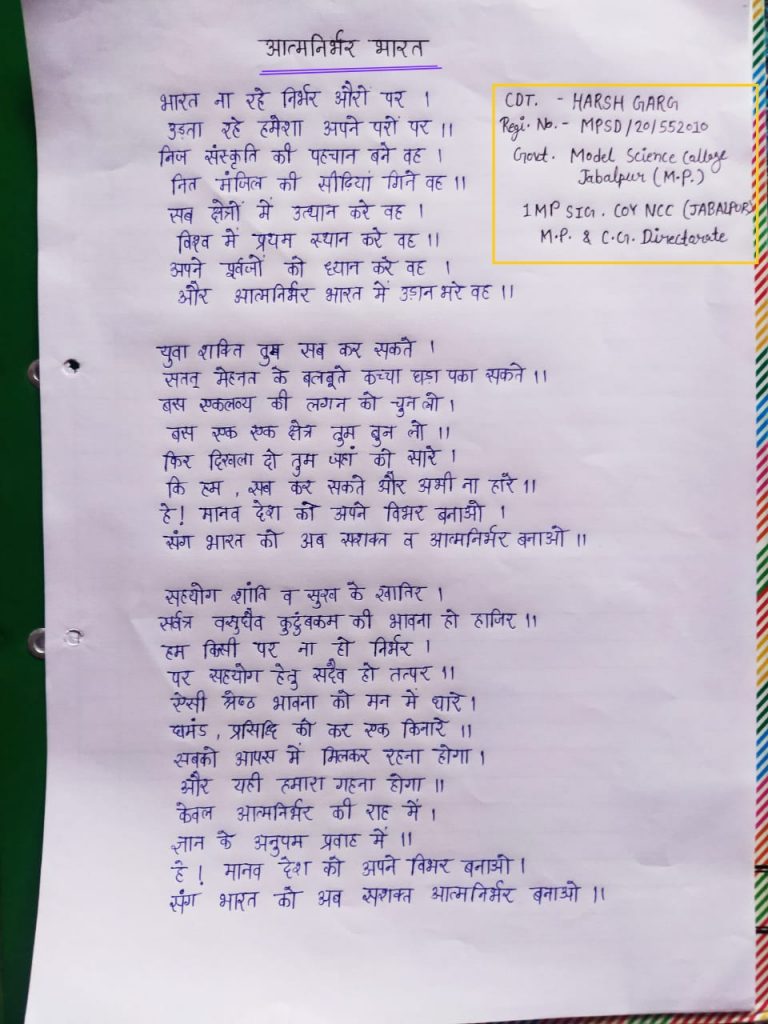 आत्मनिर्भर भारत
भारत ना रहे निर्भर औरों पर ।
उड़ता रहे हमेशा अपने परों पर ।।
निज संस्कृति की पहचान बने वह ।
नित मंजिल की सीढियां गिने वह ।।
सब क्षेत्रों में उत्थान करे वह ।
विश्व में प्रथम स्थान करे वह ।।
अपने पूर्वजों को ध्यान करे वह ।
और आत्मनिर्भर भारत में उड़ान भरे वह ।।
CDT. - HARSH GARG
Regi. No. - MPSD/20/552010
Govt. Model Science College
Jabalpur (M.P.)
1 MP SIG. COY NCC (JABALPUR)
M.P. & C.G. Directorate
युवा शक्ति तुम सब कर सकते ।
सतत् मेहनत के बलबूते कच्चा घड़ा पका सकते ।।
बस एकलव्य की लगन को चुन लो ।
बस एक एक क्षेत्र तुम बुन लो ।।
फिर दिखला दो तुम जहां को सारे ।
कि हम , सब कर सकते और अभी ना हारे ।।
हे ! मानव देश को अपने विभर बनाओ ।
संग भारत को अब सशक्त व आत्मनिर्भर बनाओ ।।
सहयोग शांति व सुख के खातिर ।
सर्वत्र वसुधैव कुटुंबकम की भावना हो हाजिर ।।
हम किसी पर ना हो निर्भर ।
पर सहयोग हेतु सदैव हो तत्पर ।।
ऐसी श्रेष्ठ भावना को मन में धारे ।
घमंड , प्रसिद्धि को कर एक किनारे ।।
सबको आपस में मिलकर रहना होगा ।
और यही हमारा गहना होगा ।।
केवल आत्मनिर्भर की राह में ।
ज्ञान के अनुपम प्रवाह में ।।
हे ! मानव देश को अपने विभर बनाओ ।
संग भारत को अब सशक्त आत्मनिर्भर बनाओ ।।